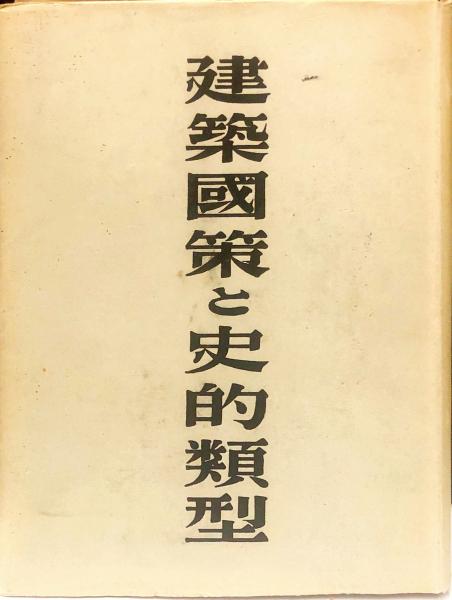 建築國策と史的類型